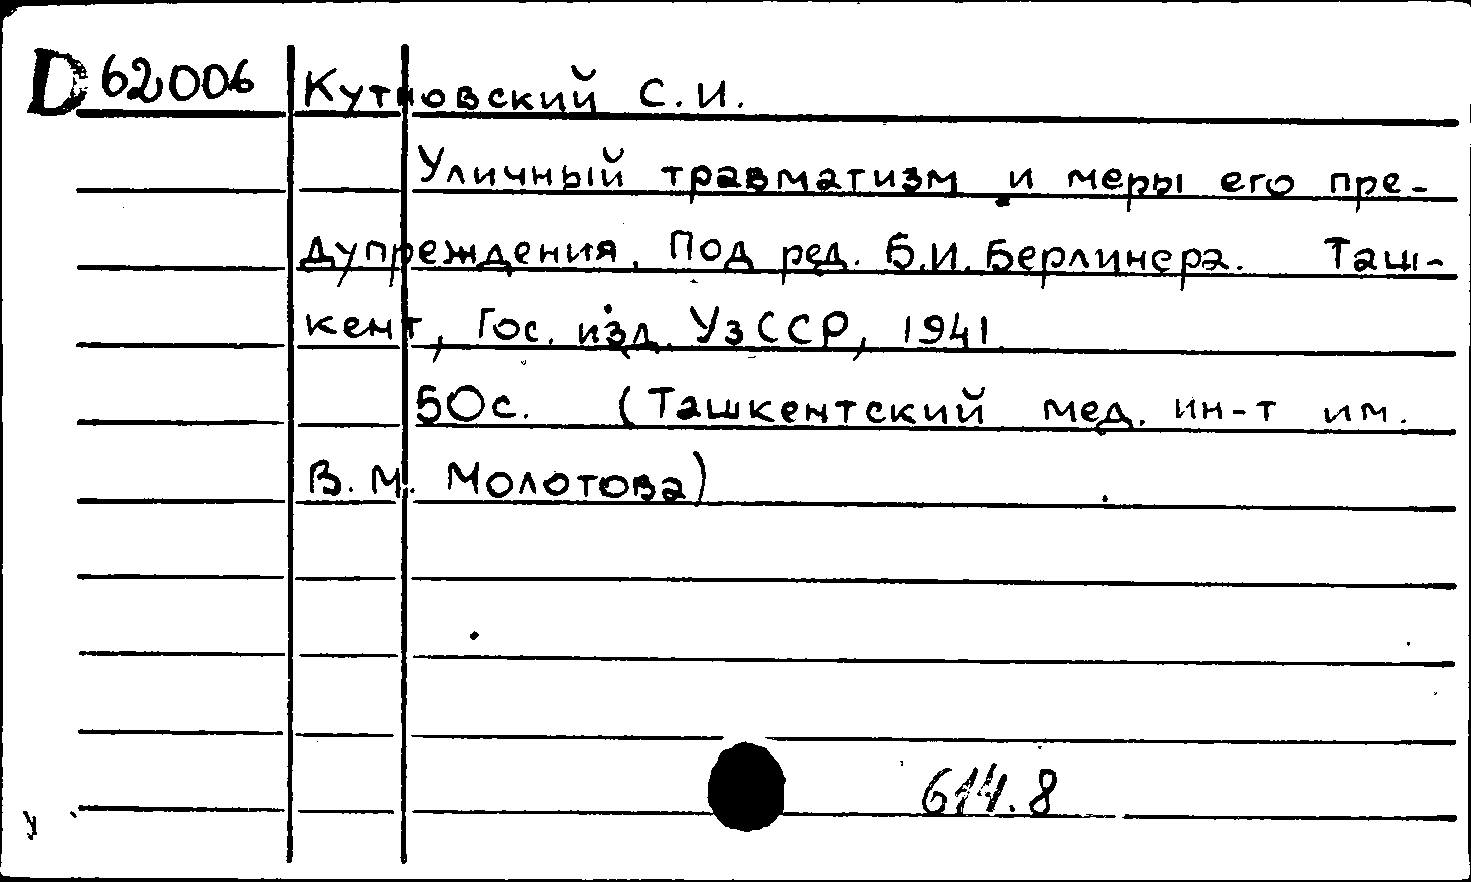 D 62006 Кутновский С.И.
Уличный травматизм и меры его пре-
дупреждения. Под ред. Б.И. Берлинера. Таш-
кент, Гос. изд. УзССР, 1941.
50с. (Ташкентский мед. ин-т им.
В.М. Молотова)
614.8